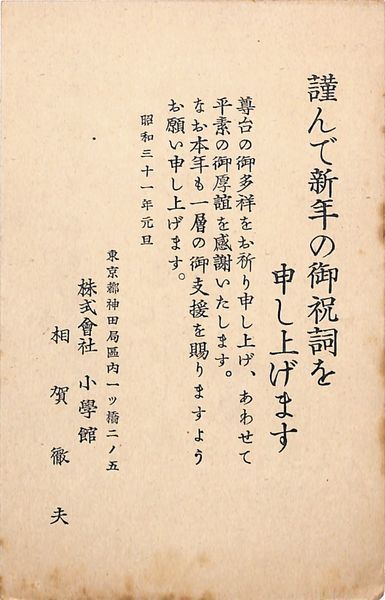 謹んで新年の御祝詞を
申し上げます
尊台の御多祥をお祈り申し上げ、あわせて
平素の御厚誼を感謝いたします。
なお本年も一層の御支援を賜りますよう
お願い申し上げます。
昭和三十一年元旦
東京都神田局區內一ッ橋二ノ五
株式會社 小學館
相賀徹夫